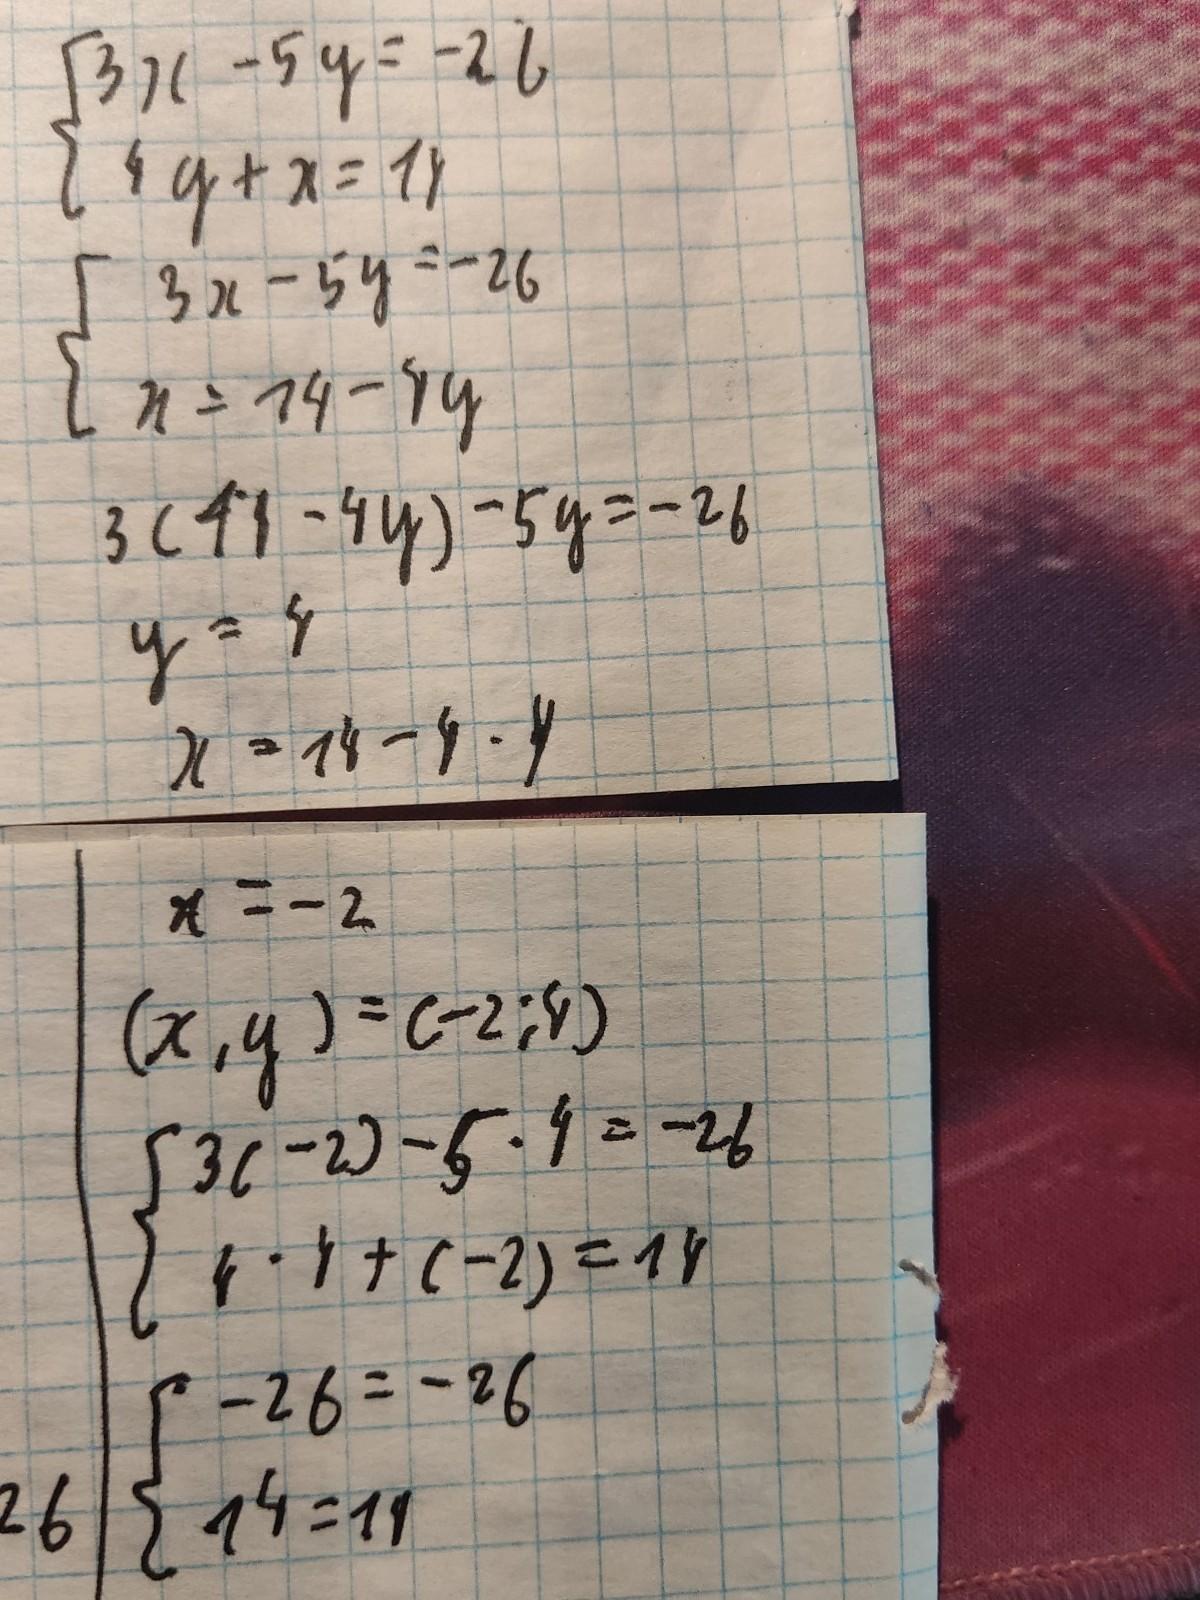 {3x - 5y = -26
4y + x = 14
{3x - 5y = -26
x = 14 - 4y
3(14 - 4y) - 5y = -26
y = 4
x = 14 - 4 · 4
x = -2
(x, y) = (-2; 4)
{3(-2) - 5 · 4 = -26
4 · 4 + (-2) = 14
{-26 = -26
14 = 14
26